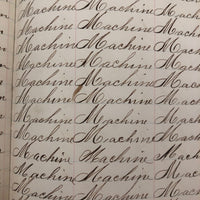 Machine Machine Machine
Machine Machine Machine
Machine Machine Machine
Machine Machine Machine
Machine Machine Machine
Machine Machine Machine
Machine Machine Machine
Machine Machine Machine
Machine Machine Machine
Machine Machine Machine